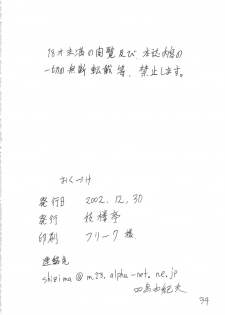 18才未満の閲覧及び、本誌内容の
一切の無断転載等、禁止します。
おくづけ
発行日 2002.12.30
発行 技楼亭
印刷 フリーク 様
連絡先
shizima@m23.alpha-net.ne.jp
34